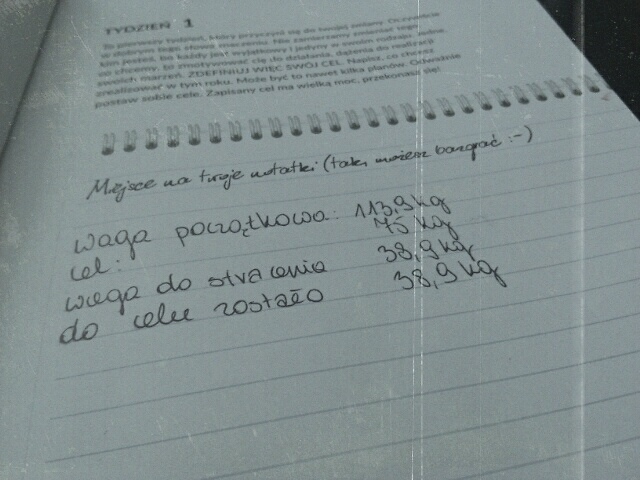 TYDZIEŃ 1
To pierwszy tydzień, który przyczyni się do twojej zmiany. Oczywiście
w dobrym tego słowa znaczeniu. Nie zamierzamy zmieniać tego,
kim jesteś, bo każdy jest wyjątkowy i jedyny w swoim rodzaju. Jedne,
co chcemy, to zmotywować cię do działania, dążenia do realizacji
swoich marzeń. ZDEFINIUJ WIĘC SWÓJ CEL. Napisz, co chcesz
zrealizować w tym roku. Może być to nawet kilka planów. Odważnie
postaw sobie cele. Zapisany cel ma wielką moc, przekonasz się!
Miejsce na twoje notatki (tak, możesz bazgrać :-)
waga początkowa: 113,9 kg
cel: 75 kg
waga do stracenia 38,9 kg
do celu zostało 38,9 kg